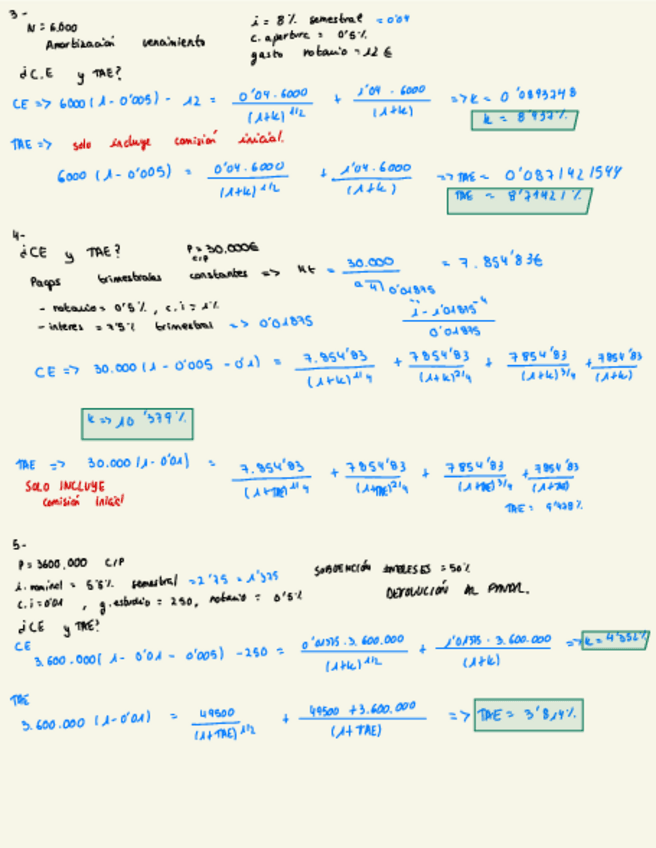 3-
N = 6.000 i = 8% semestral = 0'04
Amortización vencimiento c. apertura = 0'5%
gasto notario = 12 €
¿C.E y TAE?
CE => 6000 (1 - 0'005) - 12 = 0'04 · 6000 / (1+k)^1/2 + 1'04 · 6000 / (1+k) => k = 0'0893748
k = 8'937%
TAE => solo incluye comisión inicial.
6000 (1 - 0'005) = 0'04 · 6000 / (1+k)^1/2 + 1'04 · 6000 / (1+k) => TAE = 0'0871421544
TAE = 8'71421%
4-
¿CE y TAE? P = 30.000€
c/p
Pagos trimestrales constantes => Kt = 30.000 / a 4 0'01875 = 7.854'83€
- notario = 0'5%, c.i = 1%
- interes = 7'5% trimestral => 0'01875 1 - 1'01875^-4 / 0'01875
CE => 30.000 (1 - 0'005 - 0'1) = 7.854'83 / (1+k)^1/4 + 7854'83 / (1+k)^2/4 + 7854'83 / (1+k)^3/4 + 7854'83 / (1+k)
k => 10'379%
TAE => 30.000 (1 - 0'01) = 7.854'83 / (1+TAE)^1/4 + 7854'83 / (1+TAE)^2/4 + 7854'83 / (1+TAE)^3/4 + 7854'83 / (1+TAE)
SOLO INCLUYE
comisión inicial
TAE = 9'428%
5-
P = 3600.000 C/P SUBVENCIÓN INTERESES = 50%
i. nominal = 5'5% semestral = 2'75 = 1'375
c.i = 0'01, g. estudio = 250, notario = 0'5% DEVOLUCIÓN AL FINAL.
¿CE y TAE?
CE
3.600.000( 1 - 0'01 - 0'005) - 250 = 0'01375 · 3.600.000 / (1+k)^1/2 + 1'01375 · 3.600.000 / (1+k) => k = 4'352%
TAE
3.600.000 (1 - 0'01) = 49500 / (1+TAE)^1/2 + 49500 + 3.600.000 / (1+TAE) => TAE = 3'814%